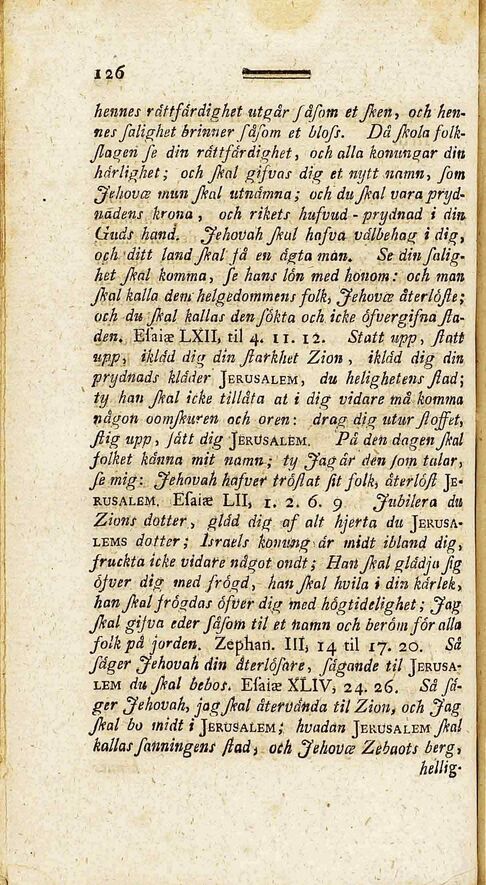 126
hennes råttfårdighet utgår såsom et sken, och hen-
nes salighet brinner såsom et bloss. Då skola folk-
slagen se din råttfårdighet, och alla konungar din
hårlighet; och skal gifvas dig et nytt namn, som
Jehovæ mun skal utnåmna; och du skal vara pryd-
nådens krona, och rikets hufvud-prydnad i din
Guds hand. Jehovah skal hafva vålbehag i dig,
och ditt land skal få en ågta man. Se din salig-
het skal komma, se hans lön med honom: och man
skal kalla dem helgedommens folk, Jehovæ återlöste;
och du skal kallas den sökta och icke öfvergifna sta-
den. Esaiæ LXII, til 4. 11. 12. Statt upp, statt
upp, iklåd dig din starkhet Zion, iklåd dig din
prydnads klåder JERUSALEM, du helighetens stad;
ty han skal icke tillåta at i dig vidare må komma
någon oomskuren och oren: drag dig utur stoffet,
stig upp, sått dig JERUSALEM. På den dagen skal
folket kånna mit namn; ty Jag år den som talar,
se mig: Jehovah hafver tröstat sit folk, återlöst JE-
RUSALEM. Esaiæ LII, 1. 2. 6. 9 Jubilera du
Zions dotter, glåd dig af alt hjerta du JERUSA-
LEMS dotter; Israels konung år midt ibland dig,
fruckta icke vidare något ondt; Han skal glådja sig
öfver dig med frögd, han skal hvila i din kårlek,
han skal frögdas öfver dig med högtidelighet; Jag
skal gifva eder såsom til et namn och beröm för alla
folk på jorden. Zephan. III, 14 til 17. 20. Så
såger Jehovah din återlösare, sågande til JERUSA-
LEM du skal bebos. Esaiæ XLIV, 24. 26. Så så-
ger Jehovah, jag skal återvånda til Zion, och Jag
skal bo midt i JERUSALEM; hvadan JERUSALEM skal
kallas sanningens stad, och Jehovæ Zebaots berg,
hellig-